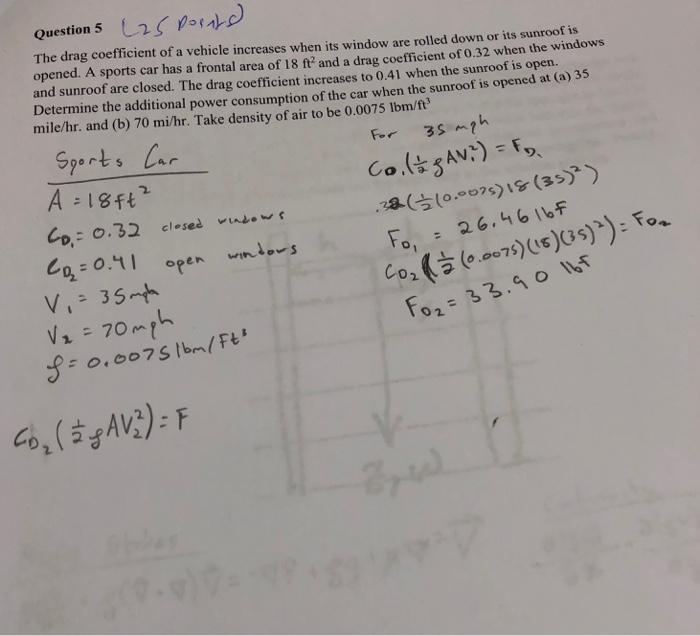 Question 5 (25 points)
The drag coefficient of a vehicle increases when its window are rolled down or its sunroof is
opened. A sports car has a frontal area of 18 ft² and a drag coefficient of 0.32 when the windows
and sunroof are closed. The drag coefficient increases to 0.41 when the sunroof is open.
Determine the additional power consumption of the car when the sunroof is opened at (a) 35
mile/hr. and (b) 70 mi/hr. Take density of air to be 0.0075 lbm/ft³
Sports Car
A = 18ft²
C_D₁ = 0.32 closed windows
C_D₂ = 0.41 open windows
V₁ = 35mph
V₂ = 70mph
ρ = 0.0075 lbm/ft³
C_D₂(½ρAV₂²) = F
For 35 mph
C_D₁(½ρAV₁²) = F_D₁
.32(½(0.0075)18(35)²)
F_D₁ = 26.46 lbf
C_D₂(½(0.0075)(18)(35)²) = F_D₂
F_D₂ = 33.90 lbf